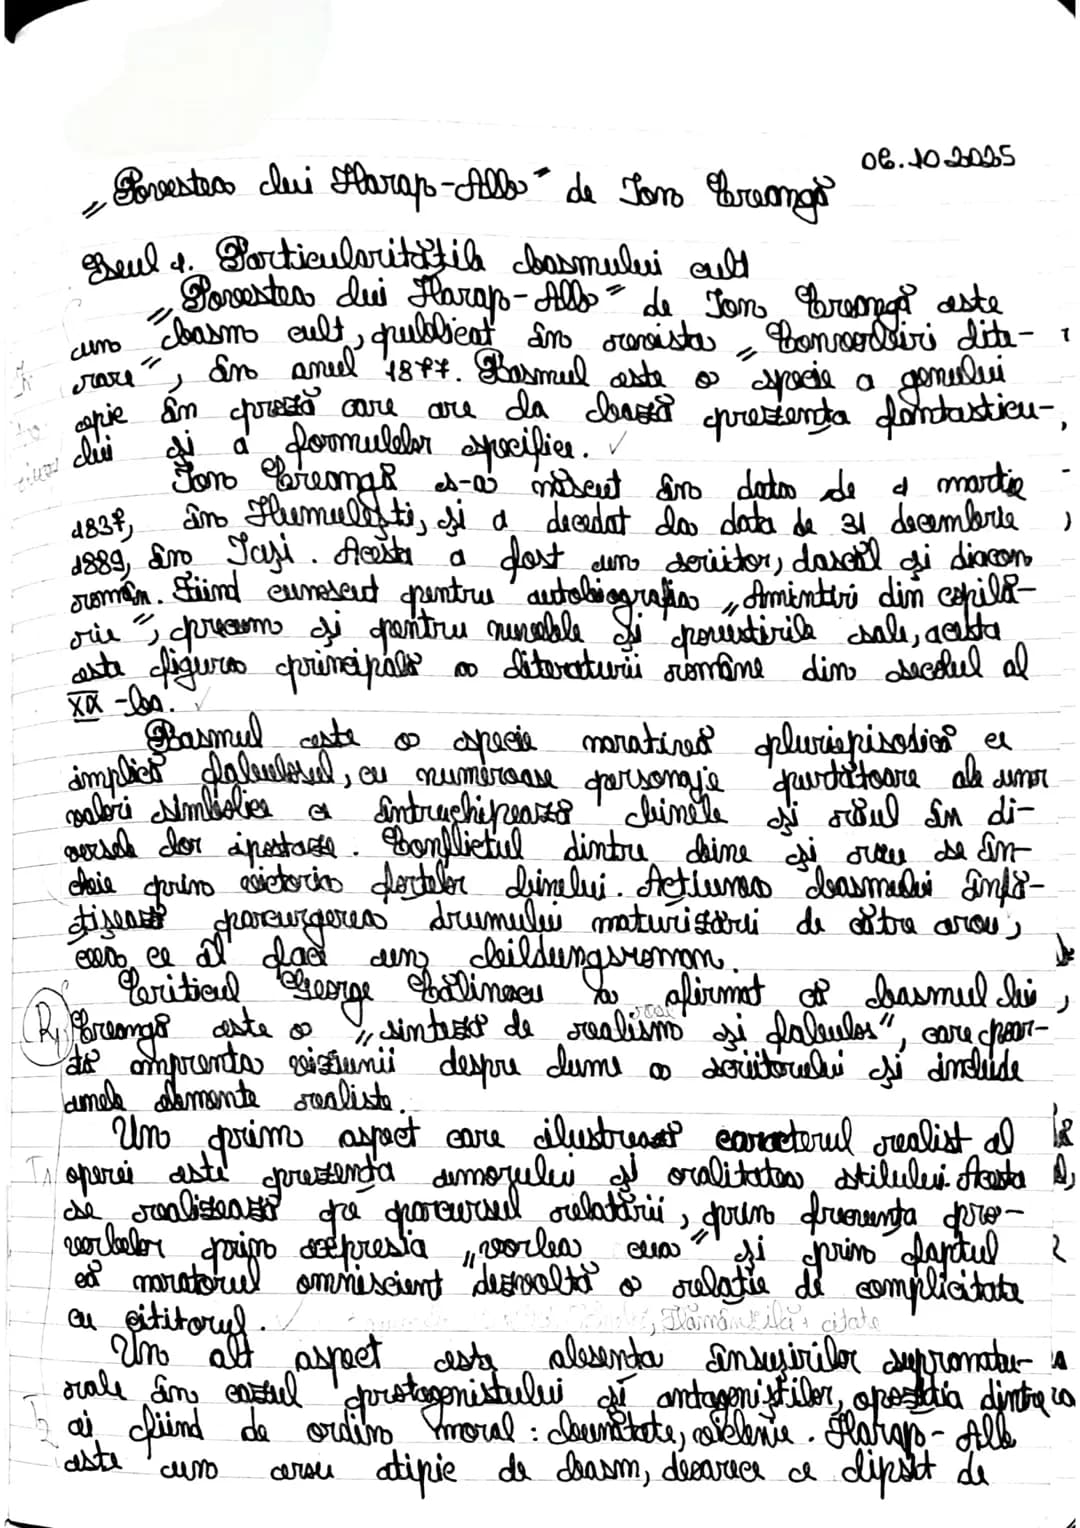 08.10.2025
„Povestea lui Harap-Alb" de Ion Creangă
Eseul 1. Particularitățile basmului cult
„Povestea lui Harap-Alb" de Ion Creangă este
un basm cult, publicat în revista „Convorbiri lite-
rare", în anul 1877. Basmul este o specie a genului
epic în proză care are la bază prezența fantasticu-
lui și a formulelor specifice.
Ion Creangă s-a născut în data de 1 martie
1837, în Humulești, și a decedat la data de 31 decembrie
1889, în Iași. Acesta a fost un scriitor, dascăl și diacon
român. Fiind cunoscut pentru autobiografia „Amintiri din copilă-
rie", precum și pentru nuvelele și povestirile sale, acesta
este figura principală a literaturii române din secolul al
XIX-lea.
Basmul este o specie narativă pluriepisodică ce
implică fabulosul, cu numeroase personaje purtătoare ale unor
valori simbolice ce întruchipează binele și răul în di-
versele lor ipostaze. Conflictul dintre bine și rău se în-
cheie prin victoria forțelor binelui. Acțiunea basmului înfă-
țișează parcurgerea drumului maturizării de către erou,
ceea ce îl face un bildungsroman.
Criticul George Călinescu a afirmat că basmul lui
R1 Creangă este o „sinteză de realism și fabulos", care poar-
tă amprenta viziunii despre lume a scriitorului și include
unele elemente realiste.
Un prim aspect care ilustrează caracterul realist al
T1 operei este prezența umorului și oralitatea stilului. Acesta
se realizează pe parcursul relatării, prin frecvența pro-
verbelor prin expresia „vorba ceea" și prin faptul
că naratorul omniscient dezvoltă o relație de complicitate
cu cititorul.
Flămânzilă + citate
Un alt aspect este absența însușirilor supranatu-
rale în cazul protagonistului și antagoniștilor, opoziția dintre
T2 ei fiind de ordin moral: bunătate, viclenie. Harap-Alb
este un erou atipic de basm, deoarece e lipsit de